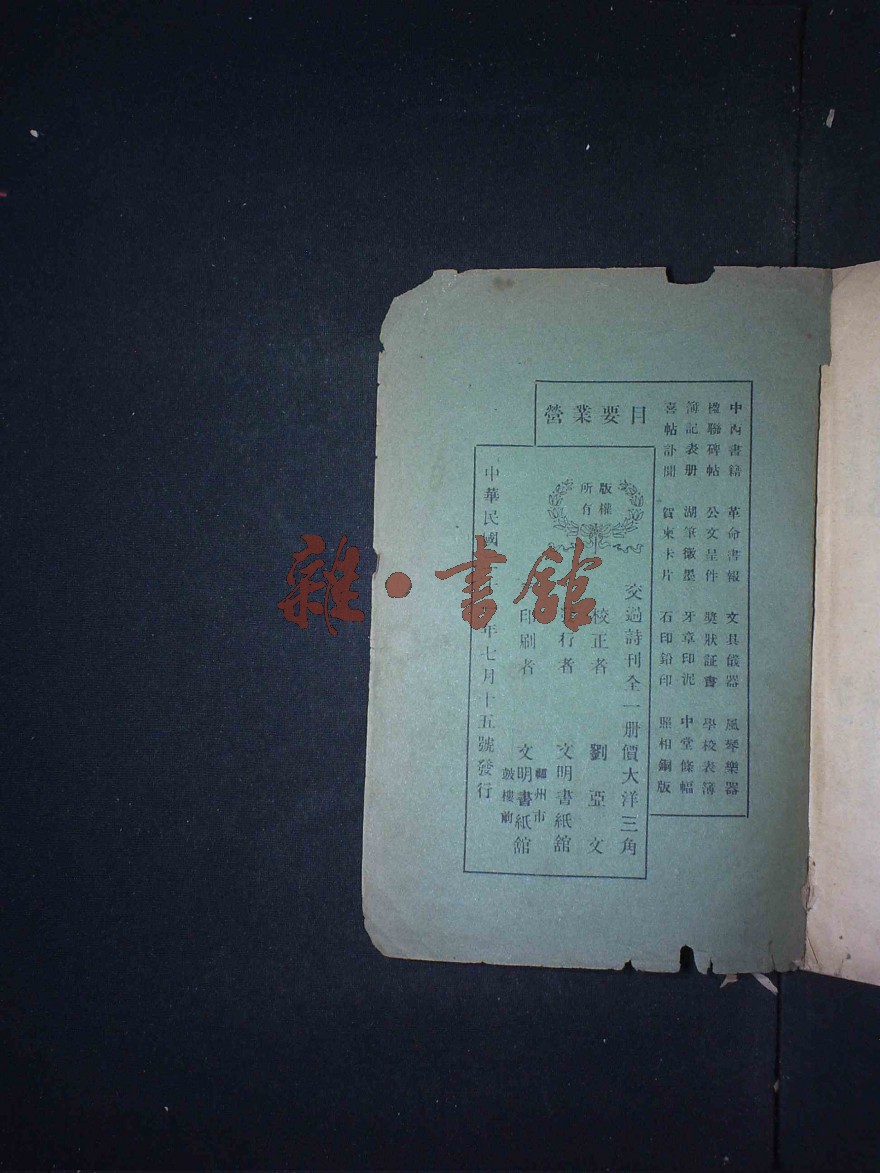 中西書籍 革命書報 文具儀器 風琴樂器
禮聯碑帖 公文呈件 獎狀証書 學校表簿
簿記表册 湖筆徽墨 牙章印泥 中堂條幅
喜帖訃聞 賀柬卡片 石印鉛印 照相銅版
營業要目
版權
所有
交過詩刊全一册價大洋三角
校正者 劉亞文
行者 文明書紙舘
福州市
印刷者 文明書紙舘
鼓樓前
中華民國 年七月十五號發行
雜·書館